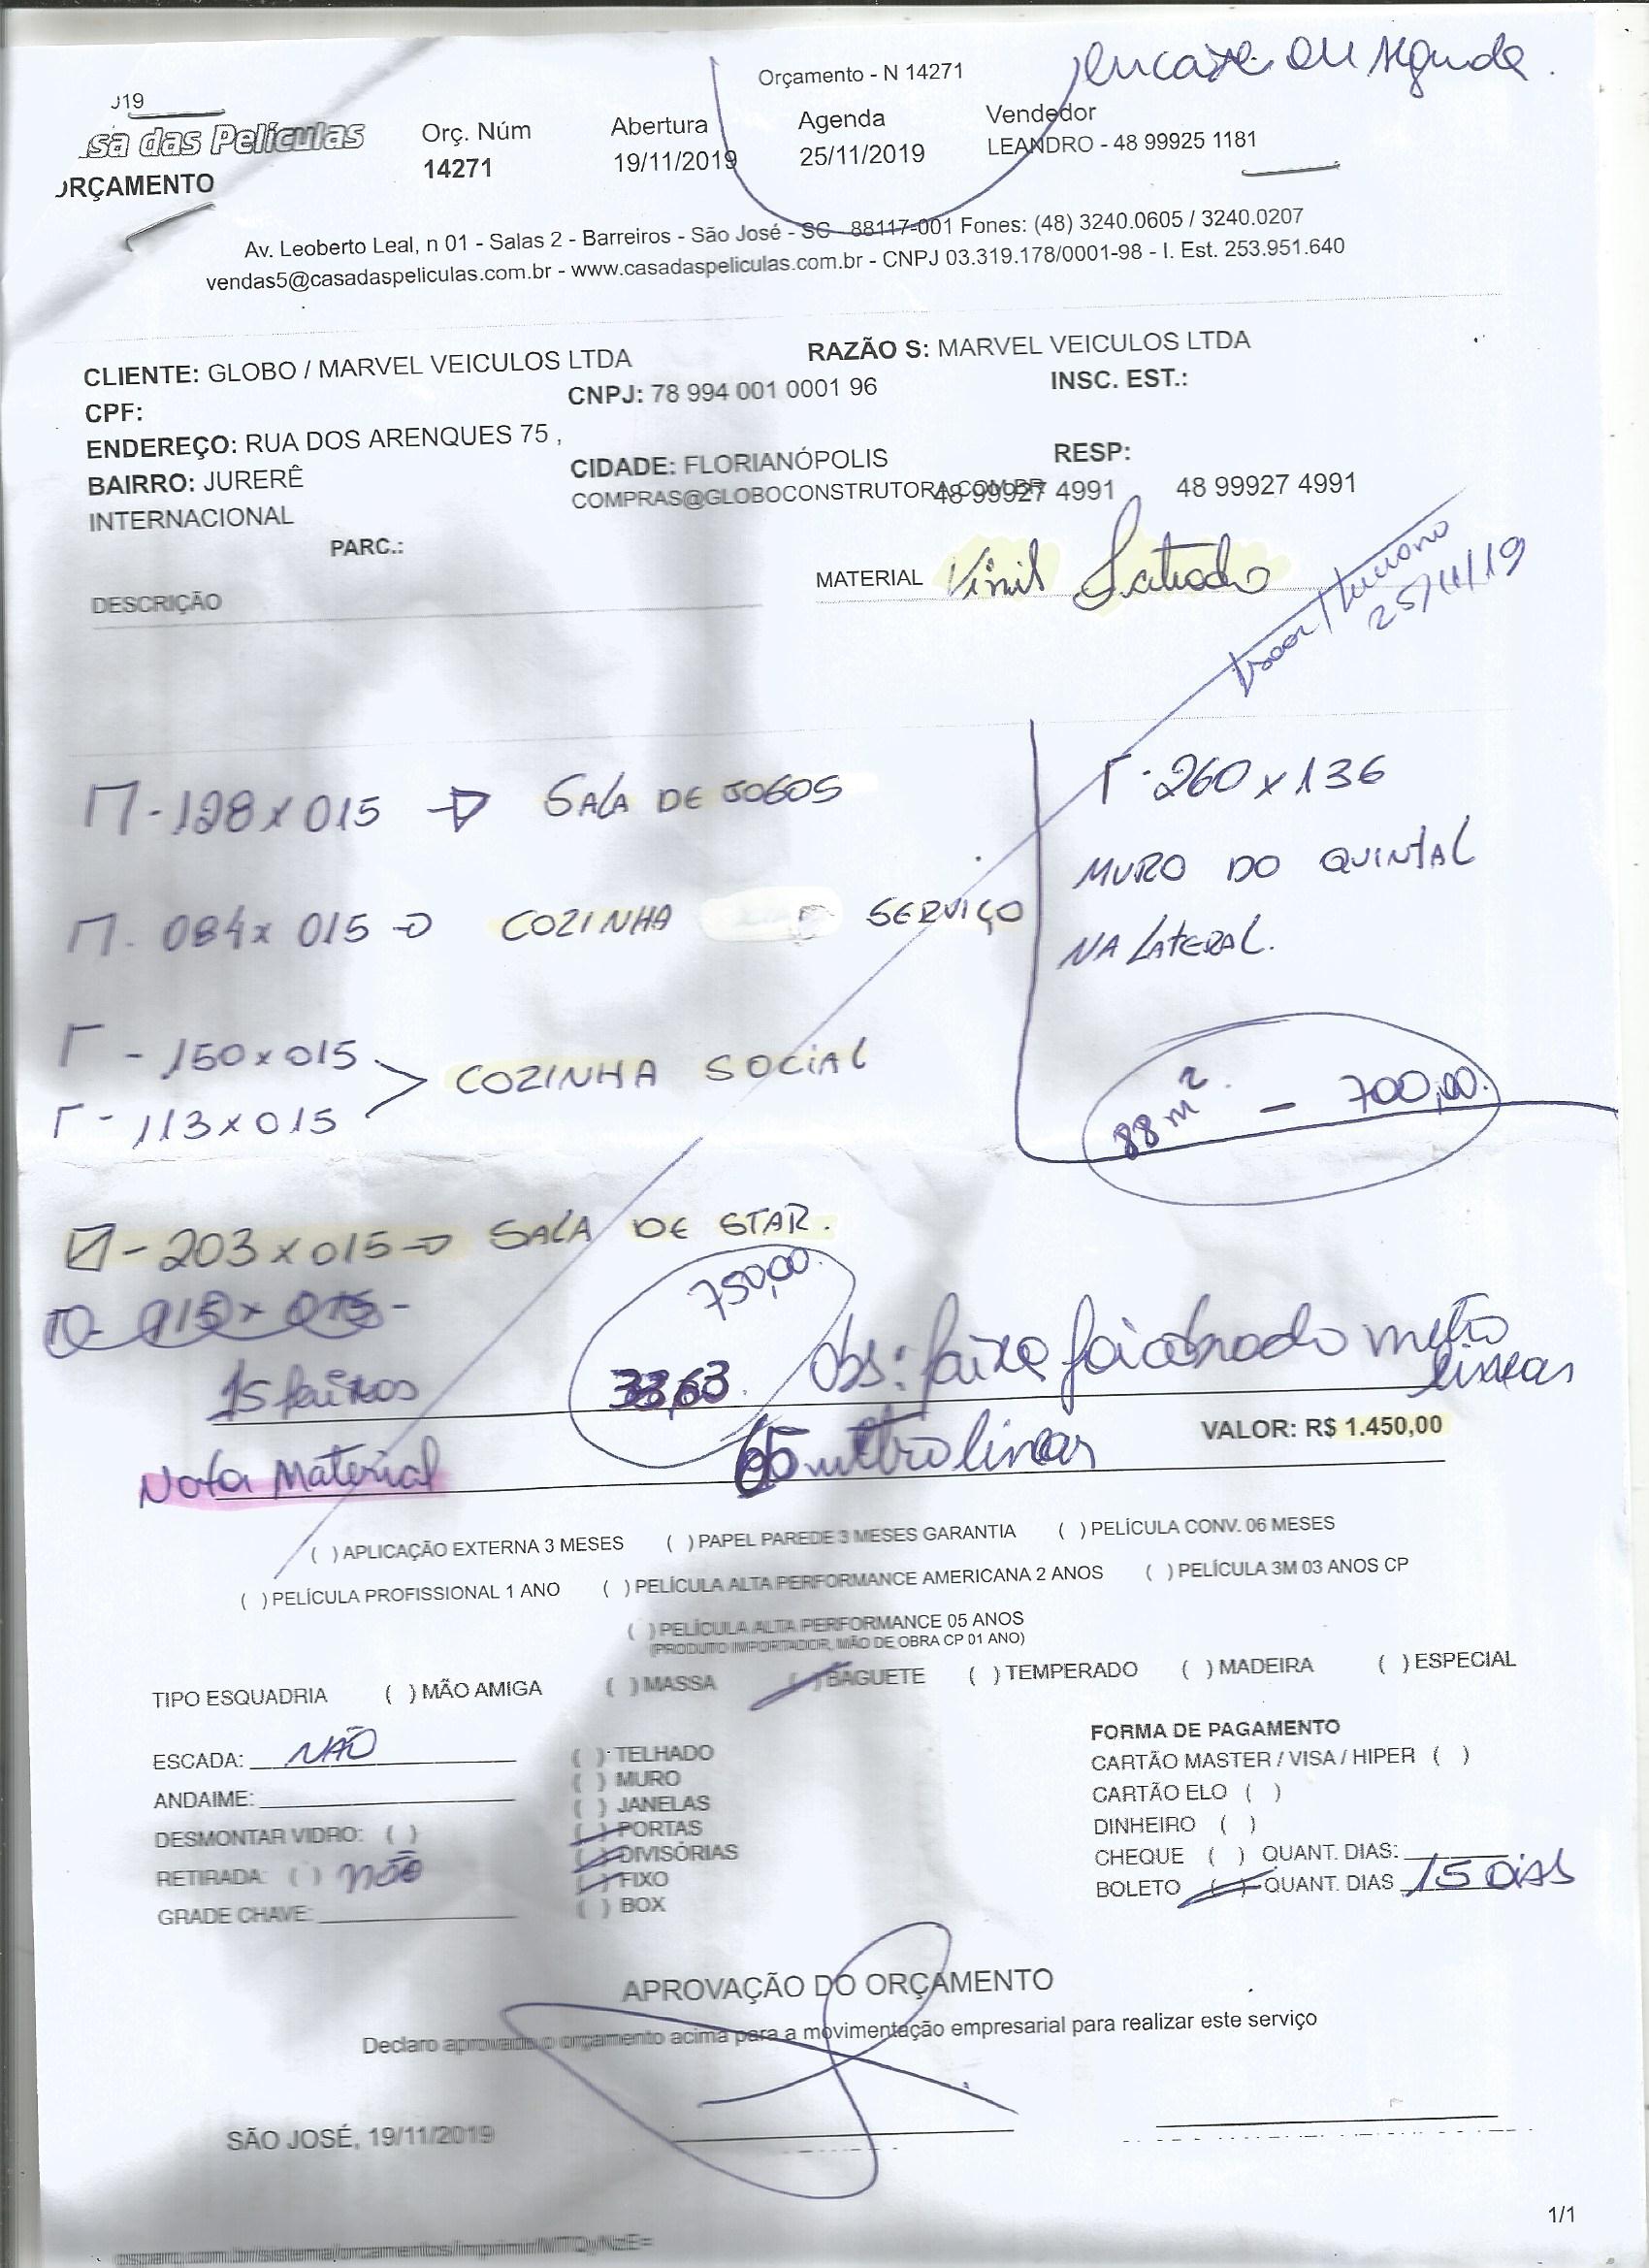 Orçamento - N 14271
encaixe ou segunda.
J19
sa das Películas
ORÇAMENTO
Orç. Núm
14271
Abertura
19/11/2019
Agenda
25/11/2019
Vendedor
LEANDRO - 48 99925 1181
Av. Leoberto Leal, n 01 - Salas 2 - Barreiros - São José - SC - 88117-001 Fones: (48) 3240.0605 / 3240.0207
vendas5@casadaspeliculas.com.br - www.casadaspeliculas.com.br - CNPJ 03.319.178/0001-98 - I. Est. 253.951.640
CLIENTE: GLOBO / MARVEL VEICULOS LTDA
RAZÃO S: MARVEL VEICULOS LTDA
CPF:
CNPJ: 78 994 001 0001 96
INSC. EST.:
ENDEREÇO: RUA DOS ARENQUES 75 ,
BAIRRO: JURERÊ
INTERNACIONAL
CIDADE: FLORIANÓPOLIS
RESP:
COMPRAS@GLOBOCONSTRUTORA.COM.BR
48 99927 4991
48 99927 4991
PARC.:
DESCRIÇÃO
MATERIAL Vinil Jatiado
Luciano
25/11/19
-128 x 015 → SALA DE JOGOS
084 x 015 → COZINHA SERVIÇO
- 150 x 015
- 113 x 015
COZINHA SOCIAL
260 x 136
MURO DO QUINTAL
NA LATERAL.
88 m² - 700,00.
- 203 x 015 → SALA DE STAR.
915 x 015 -
750,00.
33,63.
15 faixas
obs: faixa foi cobrado metro
lineas
VALOR: R$ 1.450,00
Nota Material
65 metro lineas
( ) APLICAÇÃO EXTERNA 3 MESES ( ) PAPEL PAREDE 3 MESES GARANTIA ( ) PELÍCULA CONV. 06 MESES
( ) PELÍCULA PROFISSIONAL 1 ANO ( ) PELÍCULA ALTA PERFORMANCE AMERICANA 2 ANOS ( ) PELÍCULA 3M 03 ANOS CP
( ) PELÍCULA ALTA PERFORMANCE 05 ANOS
(PRODUTO IMPORTADOR, MÃO DE OBRA CP 01 ANO)
TIPO ESQUADRIA ( ) MÃO AMIGA ( ) MASSA ( ) BAGUETE ( ) TEMPERADO ( ) MADEIRA ( ) ESPECIAL
ESCADA: NÃO
ANDAIME:
DESMONTAR VIDRO: ( )
RETIRADA: ( ) não
GRADE CHAVE:
( ) TELHADO
( ) MURO
( ) JANELAS
( ) PORTAS
( ) DIVISÓRIAS
( ) FIXO
( ) BOX
FORMA DE PAGAMENTO
CARTÃO MASTER / VISA / HIPER ( )
CARTÃO ELO ( )
DINHEIRO ( )
CHEQUE ( ) QUANT. DIAS:
BOLETO ( ) QUANT. DIAS 15 DIAS
APROVAÇÃO DO ORÇAMENTO
Declaro aprovado o orçamento acima para a movimentação empresarial para realizar este serviço
SÃO JOSÉ, 19/11/2019
1/1